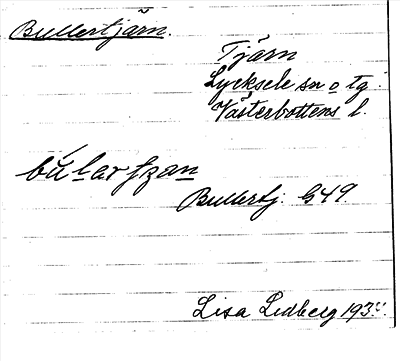 Bullertjärn.
Tjärn
Lycksele sn o tg.
Västerbottens l.
Bullertj. G49
Lisa Lidberg